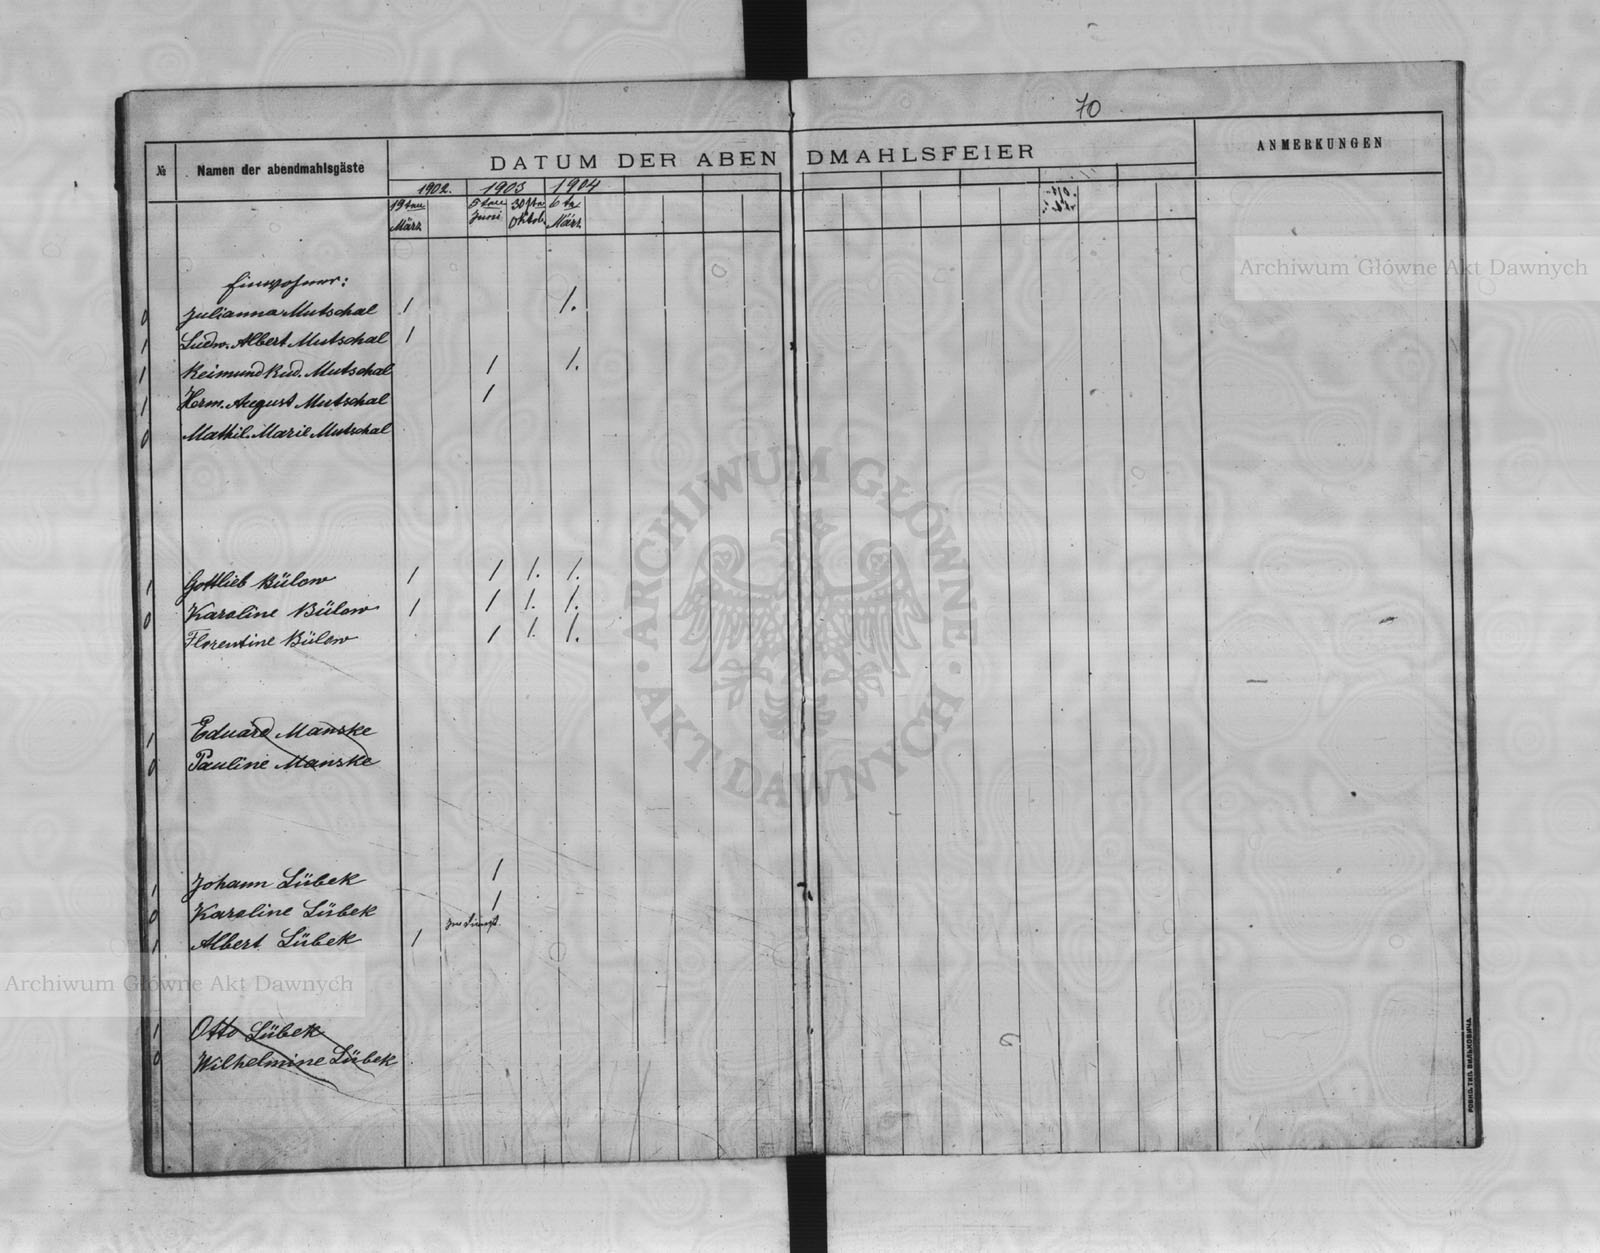 70
№ Namen der abendmahlsgäste DATUM DER ABENDMAHLSFEIER ANMERKUNGEN
1902. 1903 1904
19ten März 5ten Juni 30ten Oktob. 6ten März
Einwohner:
0 Julianna Mutschal 1 1.
1 Ludw. Albert Mutschal 1
1 Reimund Rud. Mutschal 1 1.
1 Herm. August Mutschal 1
0 Mathil. Marie Mutschal
1 Gottlieb Bülow 1 1 1. 1.
0 Karoline Bülow 1 1 1. 1.
Florentine Bülow 1 1. 1.
1 Eduard Manske
0 Pauline Manske
1 Johann Lübek 1
0 Karoline Lübek 1
1 Albert Lübek 1
1 Otto Lübek
0 Wilhelmine Lübek
Archiwum Główne Akt Dawnych
ARCHIWUM GŁÓWNE · AKT DAWNYCH ·
Archiwum Główne Akt Dawnych